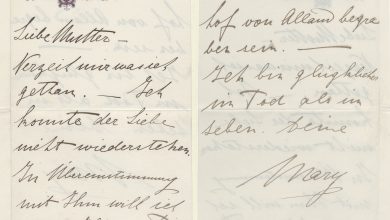 Liebe Mutter –
Verzeih mir was ich
gethan. – Ich
konnte der Liebe
nicht wiederstehen.
In Übereinstimmung
mit Ihm will ich
hof von Alland begra
ben sein. –
Ich bin glücklicher
im Tod als im
Leben. Deine
Mary